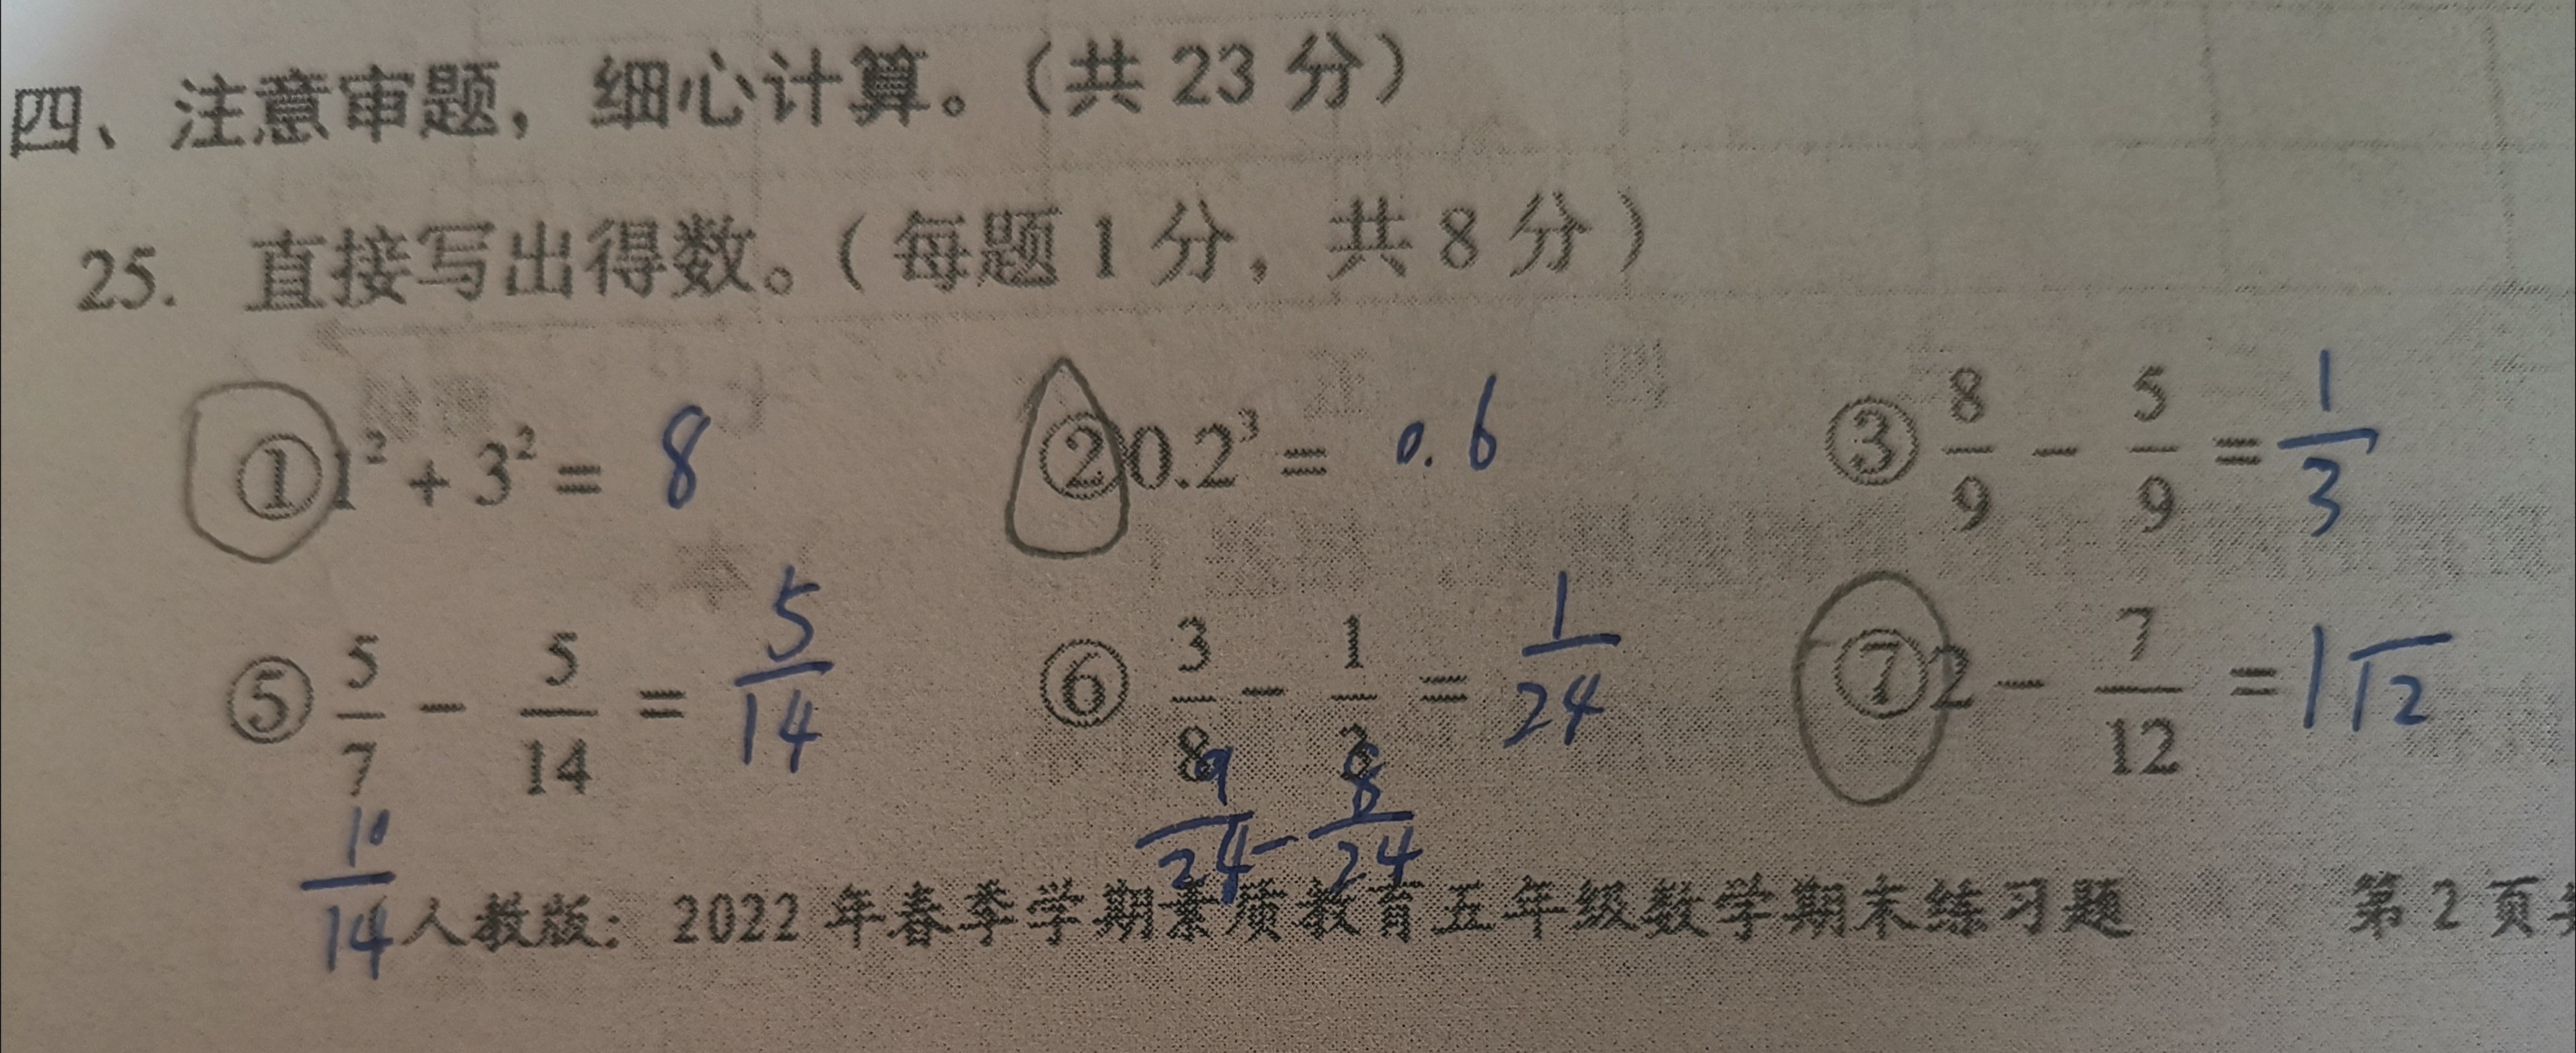 四、注意审题，细心计算。（共 23 分）
25. 直接写出得数。（每题 1 分，共 8 分）
①1²+3²= 8 ②0.2³= 0.6 ③8/9 - 5/9 = 1/3
⑤5/7 - 5/14 = 5/14 ⑥3/8 - 1/3 = 1/24 ⑦2 - 7/12 = 1 /12
10/14 9/24 - 8/24
人教版：2022 年春季学期素质教育五年级数学期末练习题 第 2 页